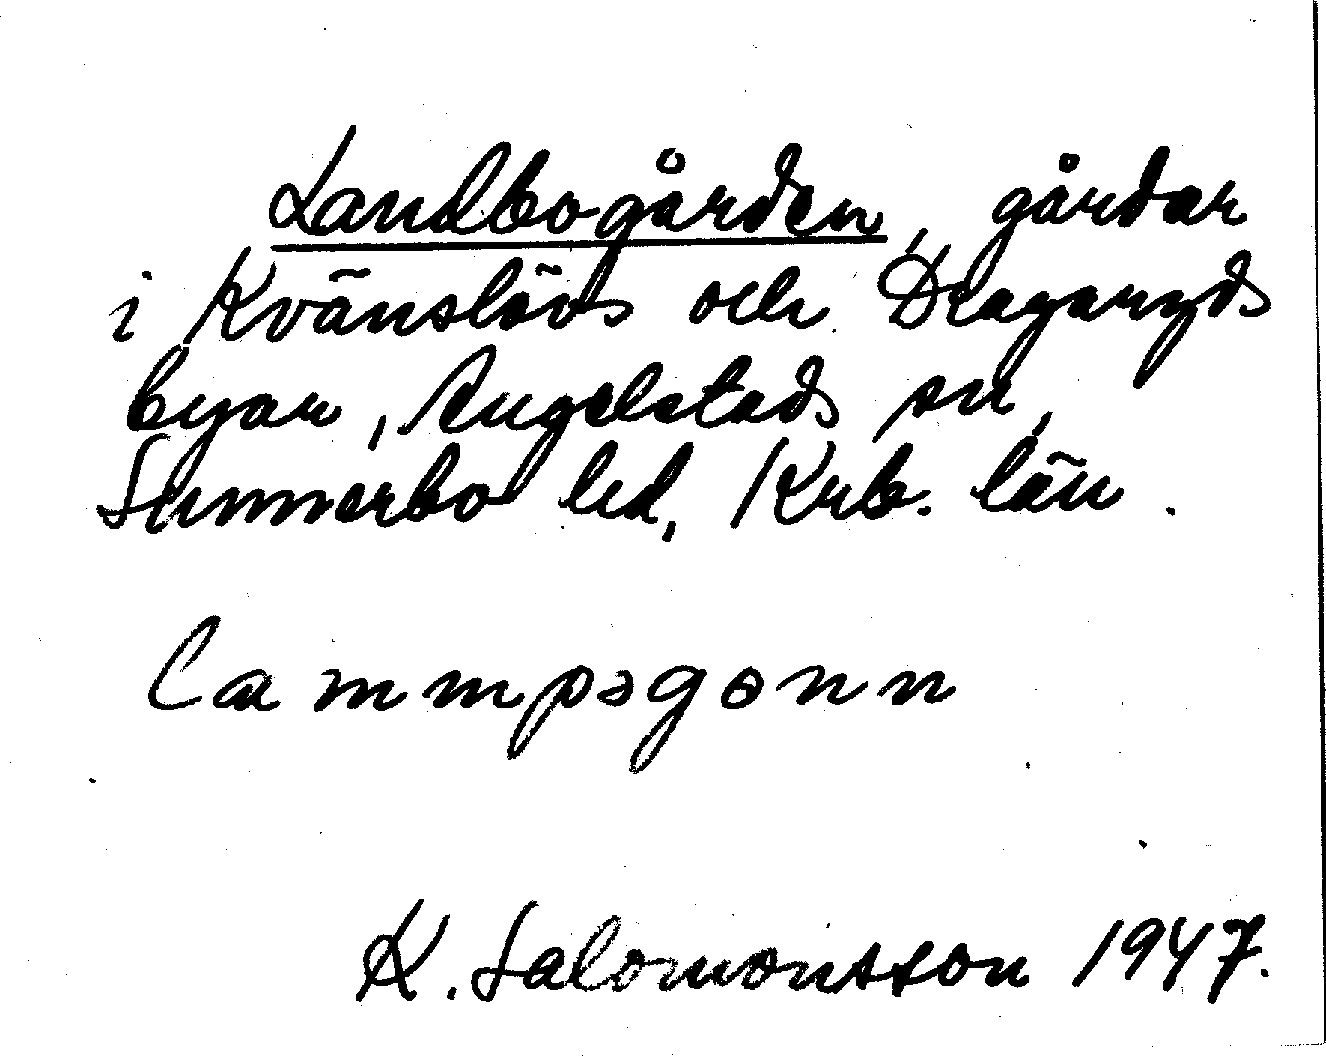 Landbogården, gårdar
i Kvänslövs och Dragaryds
byar, Angelstads sn,
Sunnerbo hd, Krb. län.
lammpəgɵnn
K. Salomonsson 1947.